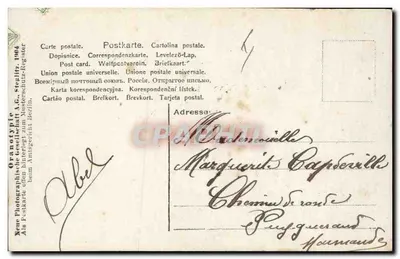 Carte postale. Postkarte. Cartolina postale.
Dopisnice. Correspondenzkarte. Levelező-Lap.
Post card. Weltpostverein. Briefkaart.
Union postale universelle. Unione postale universale.
Всемірный почтовый союзъ. Россія. Открытое письмо.
Karta korespondencyjna. Korespondenční lístek.
Cartão postal. Brefkort. Brevkort. Tarjeta postal.
Oranotypie
Neue Photographische Gesellschaft A.G., Steglitz, 1904
Als Postkarte oben hinterlegt zum Musterschutz-Register
beim Amtsgericht Berlin.
Abel
Adresse:
Mademoiselle
Marguerite Capdeville
Chemin de ronde
Marmande